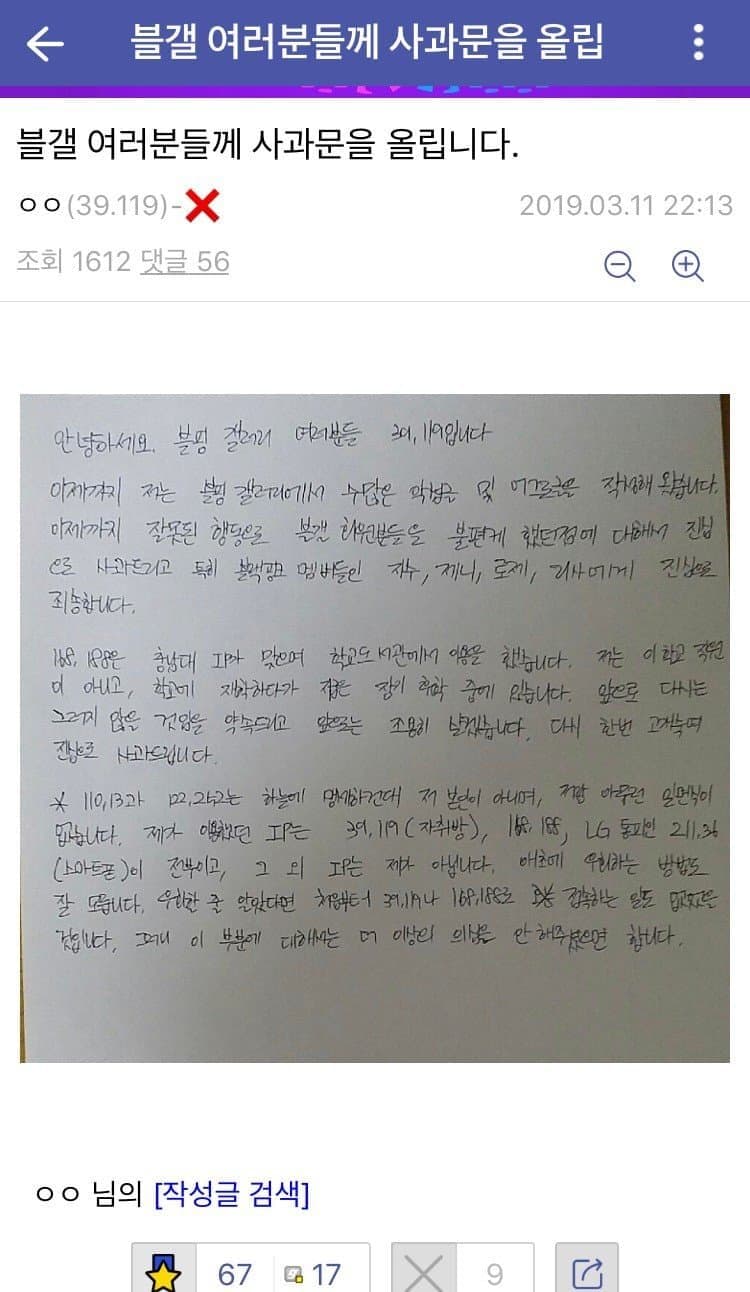 블갤 여러분들께 사과문을 올립
블갤 여러분들께 사과문을 올립니다.
ㅇㅇ(39.119)-
2019.03.11 22:13
조회 1612 댓글 56
안녕하세요. 블핑 갤러리 여러분들 39,119입니다
이제까지 저는 블핑 갤러리에서 수많은 악성글 및 어그로글을 작성해 왔습니다.
이제까지 잘못된 행동으로 블갤 회원분들을 불편케 했던점에 대해서 진심
으로 사과드리고 특히 블랙핑크 멤버들인 지수, 제니, 로제, 리사에게 진심으로
죄송합니다.
168, 188은 충남대 IP가 맞으며 학교도서관에서 이용을 했습니다. 저는 이 학교 직원
이 아니고, 학교에 재학하다가 지금은 장기 휴학 중에 있습니다. 앞으로 다시는
그러지 않을 것임을 약속드리고 앞으로는 조용히 살겠습니다. 다시 한번 고개숙여
진심으로 사과드립니다.
* 110,13과 122,252는 하늘에 맹세하건대 저 본인이 아니며, 저랑 아무런 일면식이
없습니다. 제가 이용했던 IP는 39,119(자취방), 168,188, LG 통피인 211.36
(스마트폰)이 전부이고, 그 외 IP는 제가 아닙니다. 애초에 우회하는 방법도
잘 모릅니다. 우회할 줄 알았다면 처음부터 39,119나 168,188로 접속하는 일도 없었을
것입니다. 그러니 이 부분에 대해서는 더 이상의 의심을 안 해주셨으면 합니다.
ㅇㅇ 님의 [작성글 검색]
67 17 9